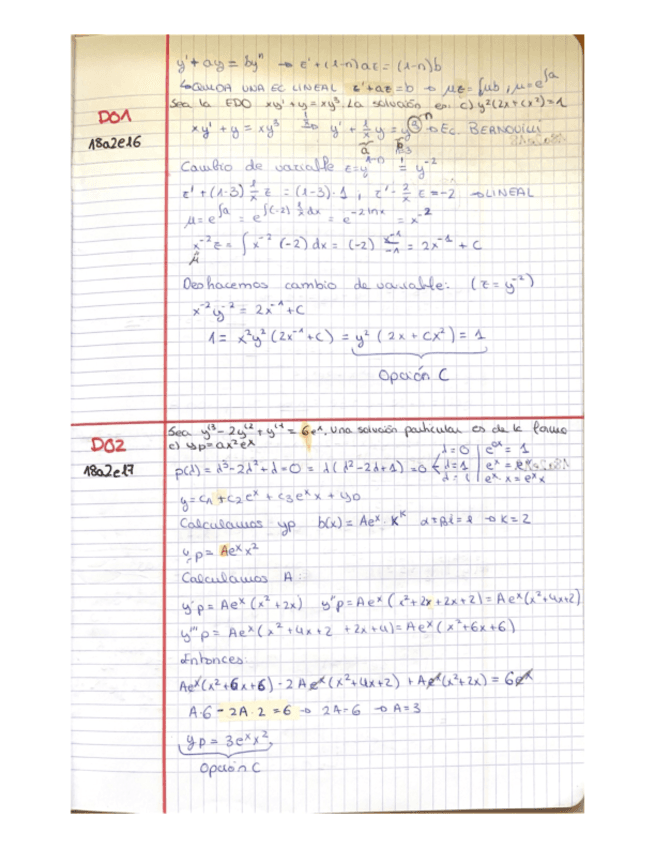 y' + ay = by^n → z' + (1-n)az = (1-n)b
↳ QUEDA UNA EC LINEAL z' + az = b → μz = ∫μb , μ = e^∫a
DO1
18a2e16
Sea la EDO xy' + y = xy³. La solución es: c) y²(2x + Cx²) = 1
xy' + y = xy³ → y' + 1/x y = y³ → Ec. BERNOUILLI
Cambio de variable z = y^(1-n) = y^-2
z' + (1-3) 1/x z = (1-3)·1 , z' - 2/x z = -2 → LINEAL
μ = e^∫a = e^∫(-2) 1/x dx = e^(-2lnx) = x^-2
x^-2 z = ∫ x^-2 (-2) dx = (-2) x^-1/-1 = 2x^-1 + C
μ
Deshacemos cambio de variable: (z = y^-2)
x^-2 y^-2 = 2x^-1 + C
1 = x²y² (2x^-1 + C) = y² (2x + Cx²) = 1
Opción C
DO2
18a2e17
Sea y'³ - 2y'² + y'¹ = 6e^x. Una solución particular es de la forma
c) yp = ax²e^x
p(λ) = λ³ - 2λ² + λ = 0 = λ(λ² - 2λ + 1) = 0
λ = 0 | e^0x = 1
λ = 1 | e^x = e^x
λ = 1 | e^x · x = e^x x
y = C1 + C2e^x + C3e^x x + y0
Calculamos yp b(x) = Ae^x · x^k → k = 2
yp = Ae^x x²
Calculamos A:
y'p = Ae^x (x² + 2x) y''p = Ae^x (x² + 2x + 2x + 2) = Ae^x (x² + 4x + 2)
y'''p = Ae^x (x² + 4x + 2 + 2x + 4) = Ae^x (x² + 6x + 6)
Entonces:
Ae^x (x² + 6x + 6) - 2Ae^x (x² + 4x + 2) + Ae^x (x² + 2x) = 6e^x
A·6 - 2A·2 = 6 → 2A = 6 → A = 3
yp = 3e^x x²
Opción C